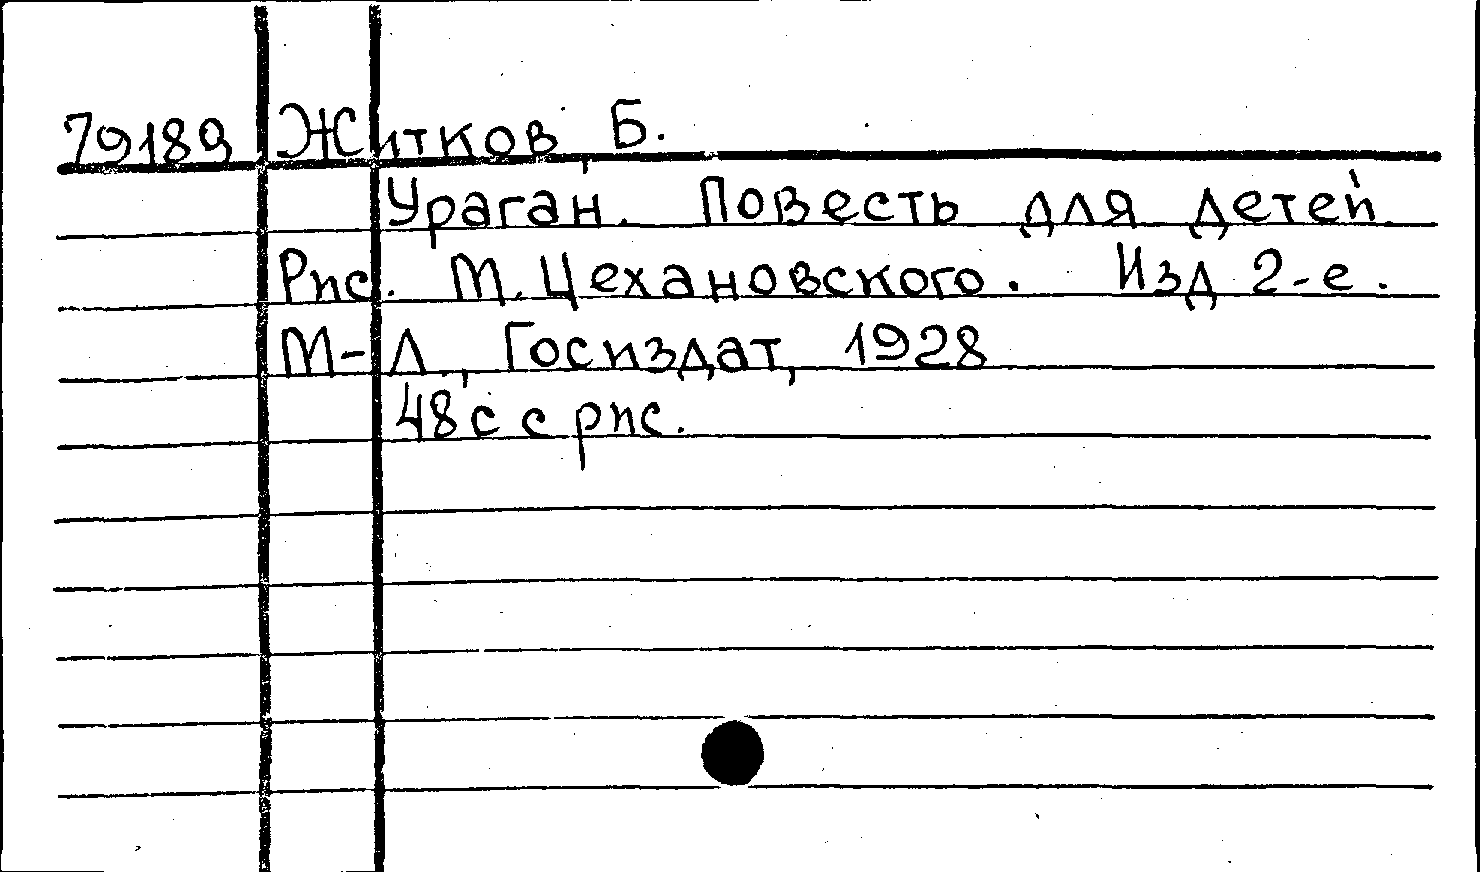 79189 Житков, Б.
Ураган. Повесть для детей.
Рис. М. Цехановского. Изд 2-е.
М-Л., Госиздат, 1928
48 с с рис.